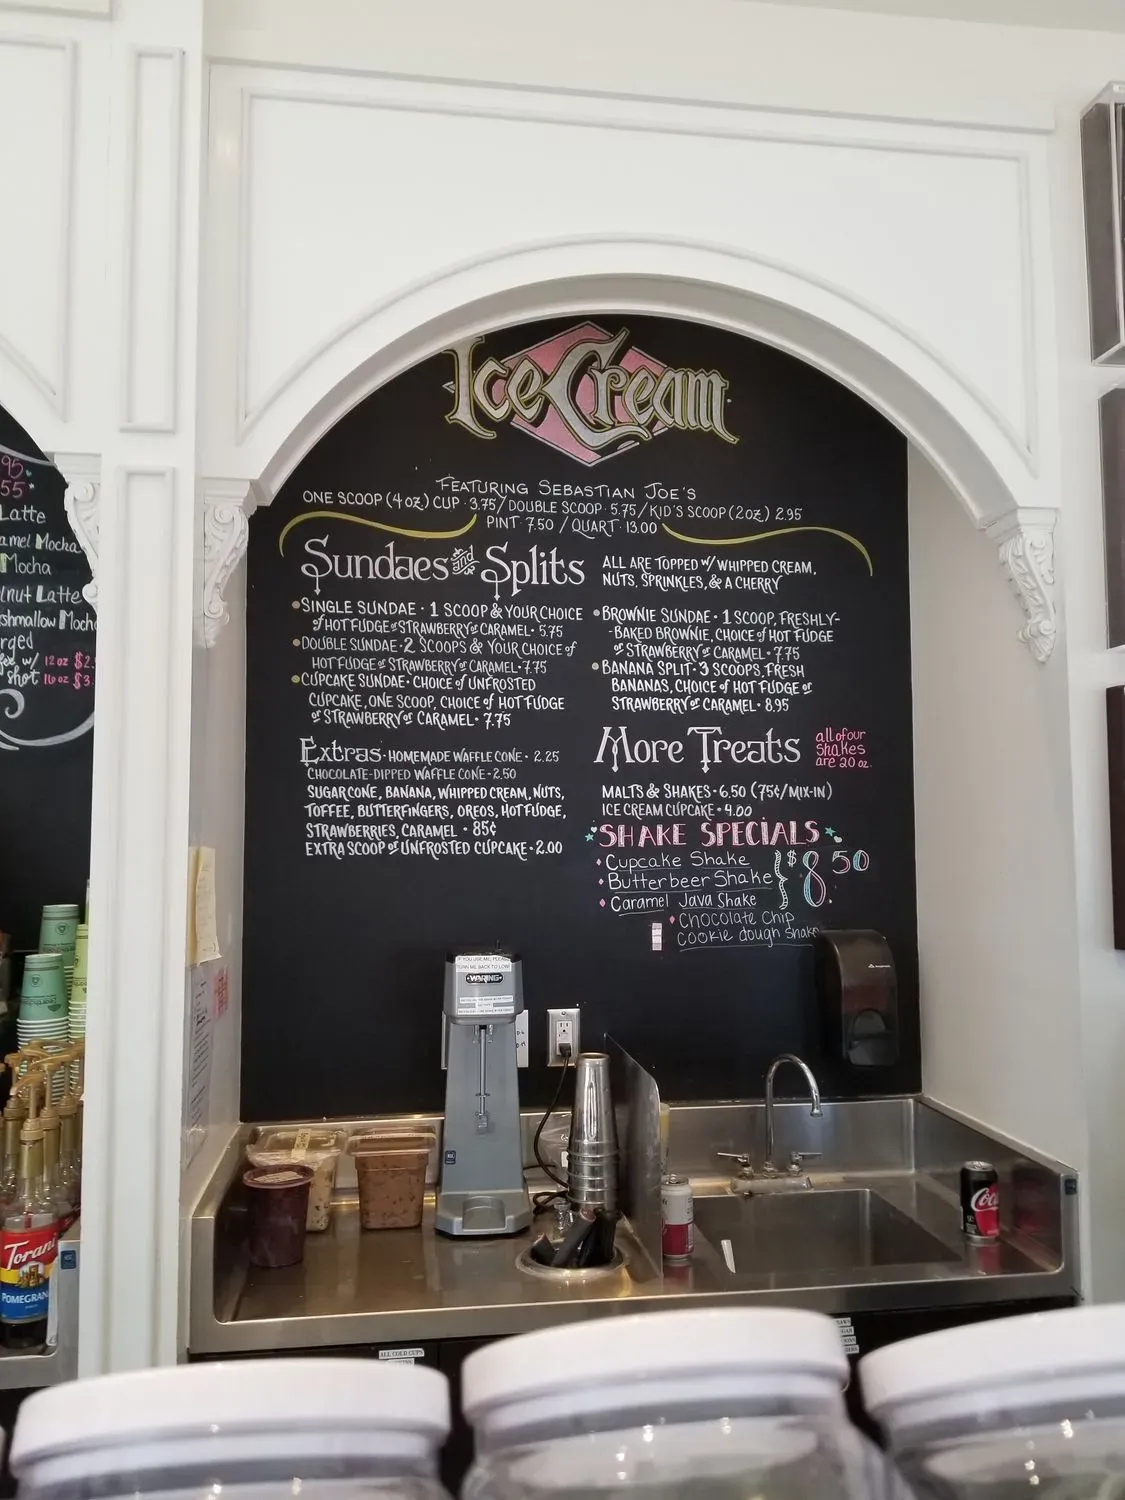 Ice Cream
FEATURING SEBASTIAN JOE'S
ONE SCOOP (4 oz) CUP · 3.75 / DOUBLE SCOOP · 5.75 / KID'S SCOOP (2 oz) 2.95
PINT · 7.50 / QUART · 13.00
Sundaes and Splits
ALL ARE TOPPED W/ WHIPPED CREAM,
NUTS, SPRINKLES, & A CHERRY
SINGLE SUNDAE · 1 SCOOP & YOUR CHOICE
of HOT FUDGE or STRAWBERRY or CARAMEL · 5.75
DOUBLE SUNDAE · 2 SCOOPS & YOUR CHOICE of
HOT FUDGE or STRAWBERRY or CARAMEL · 7.75
CUPCAKE SUNDAE · CHOICE of UNFROSTED
CUPCAKE, ONE SCOOP, CHOICE of HOT FUDGE
or STRAWBERRY or CARAMEL · 7.75
BROWNIE SUNDAE · 1 SCOOP, FRESHLY-
-BAKED BROWNIE, CHOICE of HOT FUDGE
or STRAWBERRY or CARAMEL · 7.75
BANANA SPLIT · 3 SCOOPS, FRESH
BANANAS, CHOICE of HOT FUDGE or
STRAWBERRY or CARAMEL · 8.95
Extras · HOMEMADE WAFFLE CONE · 2.25
CHOCOLATE-DIPPED WAFFLE CONE · 2.50
SUGAR CONE, BANANA, WHIPPED CREAM, NUTS,
TOFFEE, BUTTERFINGERS, OREOS, HOT FUDGE,
STRAWBERRIES, CARAMEL · 85¢
EXTRA SCOOP or UNFROSTED CUPCAKE · 2.00
More Treats
all of our
shakes
are 20 oz.
MALTS & SHAKES · 6.50 (75¢/MIX-IN)
ICE CREAM CUPCAKE · 4.00
SHAKE SPECIALS
Cupcake Shake
Butterbeer Shake
Caramel Java Shake
$8.50
Chocolate Chip
Cookie dough Shake
95
55
Latte
amel Mocha
Mocha
lnut Latte
shmallow Moch
rged
w/ 12 oz $2.
shot 16 oz $3.
IF YOU USE ME, PLEASE
TURN ME BACK TO LOW!
WARING
Torani
POMEGRAN
Coca
ALL COLD CUPS